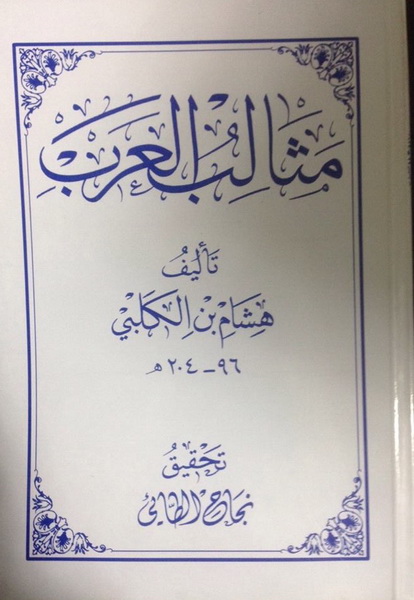 مَثَالِبُ العَرَبِ
تَأليفُ
هِشَامِ بْنِ الكَلْبِيّ
٩٦ - ٢٠٤ هـ
تَحقيقُ
نجَاح الطَائِي